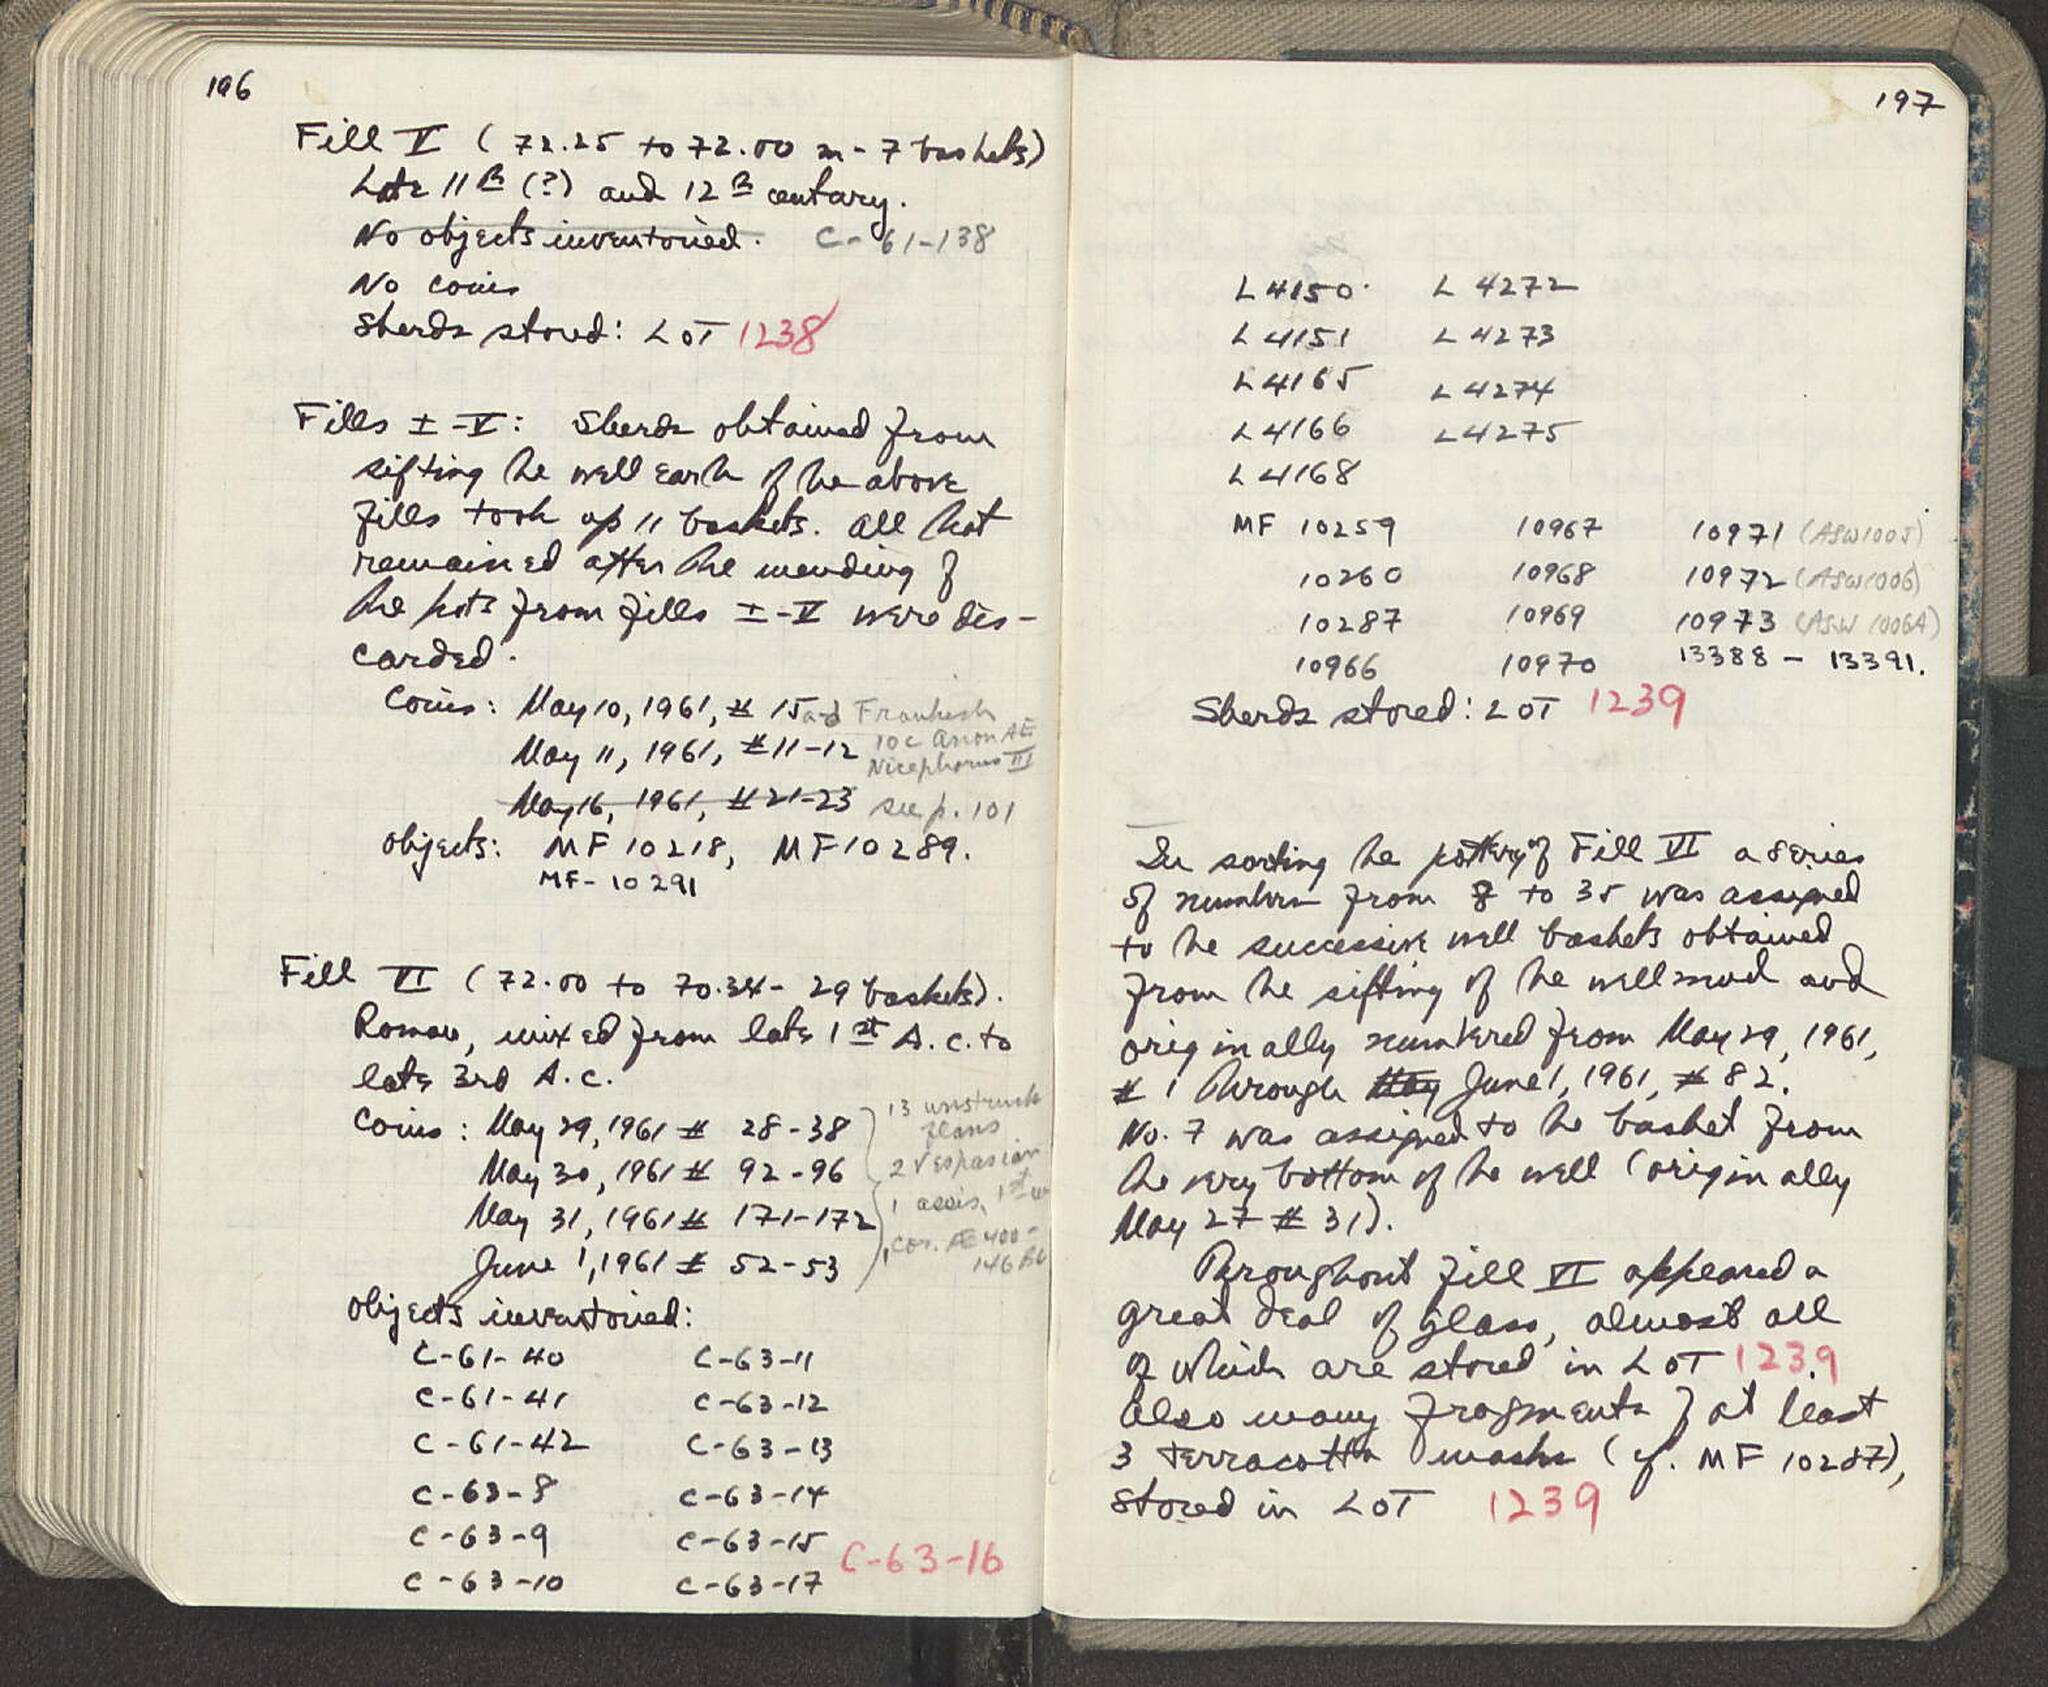 196
Fill V (72.25 to 72.00 m - 7 baskets)
Late 11th (?) and 12th century.
No objects inventoried. C-61-138
No coins
Sherds stored: LOT 1238
Fills I-V: Sherds obtained from
sifting the well earth of the above
fills took up 11 baskets. All that
remained after the mending of
the pots from fills I-V were dis-
carded.
Coins: May 10, 1961, # 15 and Frankish
May 11, 1961, # 11-12 10c Anon AE
Nicephorus III
May 16, 1961, # 21-23 see p. 101
Objects: MF 10218, MF 10289.
MF-10291
Fill VI (72.00 to 70.34 - 29 baskets).
Roman, mixed from late 1st A.C. to
late 3rd A.C.
Coins: May 29, 1961 # 28-38 13 unstruck
flans
May 30, 1961 # 92-96 2 Vespasian
May 31, 1961 # 171-172 1 1st
June 1, 1961 # 52-53 1 Cor. AE 400-
146 BC
Objects inventoried:
C-61-40 C-63-11
C-61-41 C-63-12
C-61-42 C-63-13
C-63-8 C-63-14
C-63-9 C-63-15
C-63-10 C-63-17 C-63-16
197
L 4150 L 4272
L 4151 L 4273
L 4165 L 4274
L 4166 L 4275
L 4168
MF 10259 10967 10971 (ASW1005)
10260 10968 10972 (ASW1006)
10287 10969 10973 (ASW 1006A)
10966 10970 13388 - 13391.
Sherds stored: LOT 1239
In sorting the pottery of Fill VI a series
of numbers from 8 to 35 was assigned
to the successive well baskets obtained
from the sifting of the well mud and
originally numbered from May 29, 1961,
# 1 through May June 1, 1961, # 82.
No. 7 was assigned to the basket from
the very bottom of the well (originally
May 27 # 31).
Throughout fill VI appeared a
great deal of glass, almost all
of which are stored in LOT 1239.
Also many fragments of at least
3 terracotta masks (cf. MF 10287),
stored in LOT 1239